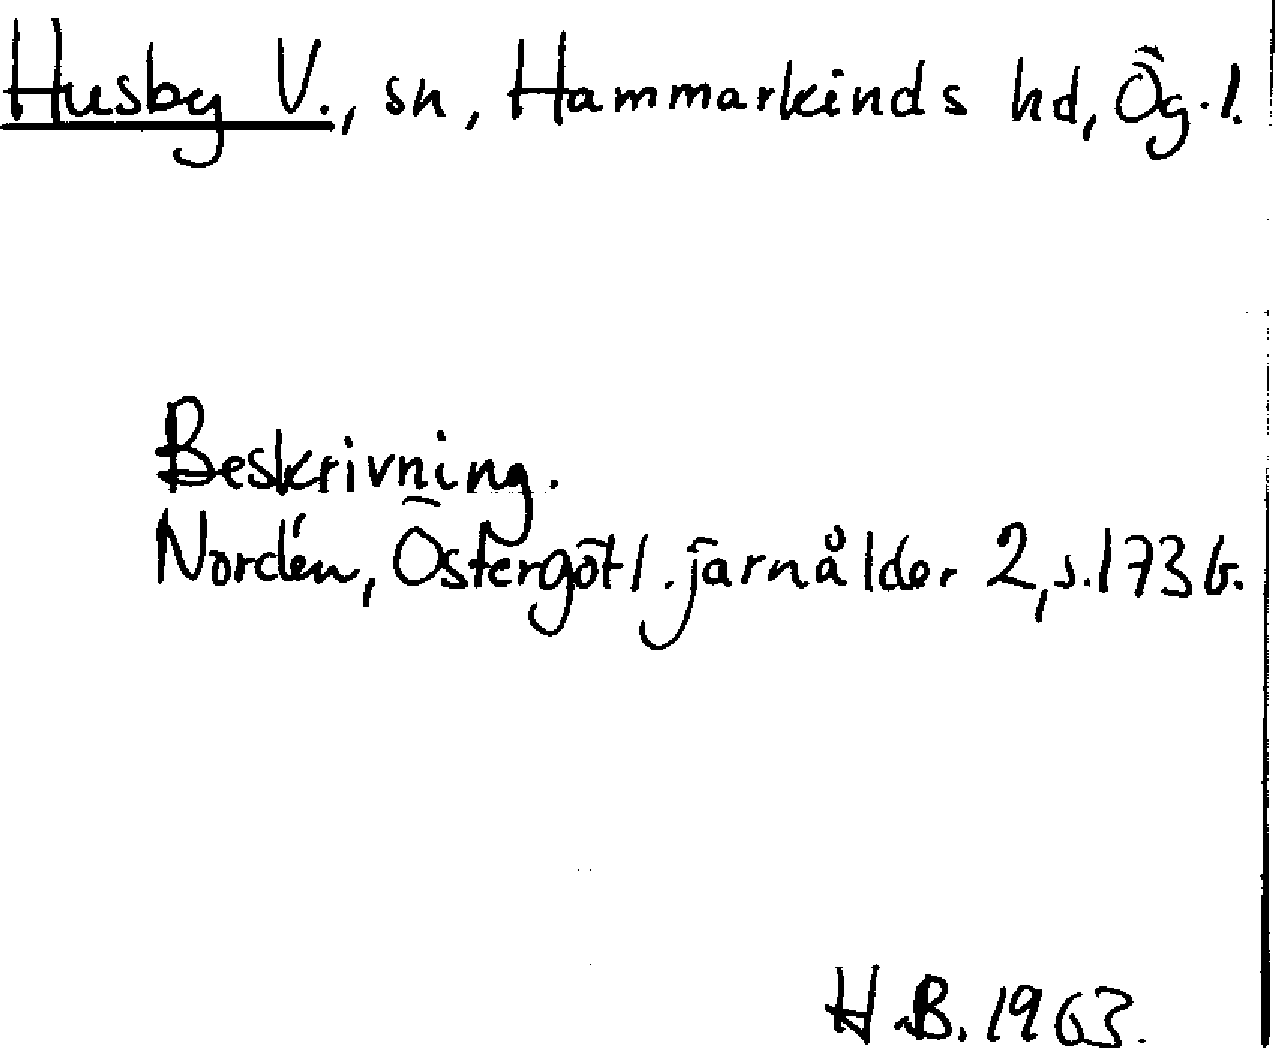 Husby V., sn, Hammarkinds hd, Ög.l.
Beskrivning.
Nordén, Östergötl. järnålder 2, s. 173 b.
H.B. 1963.